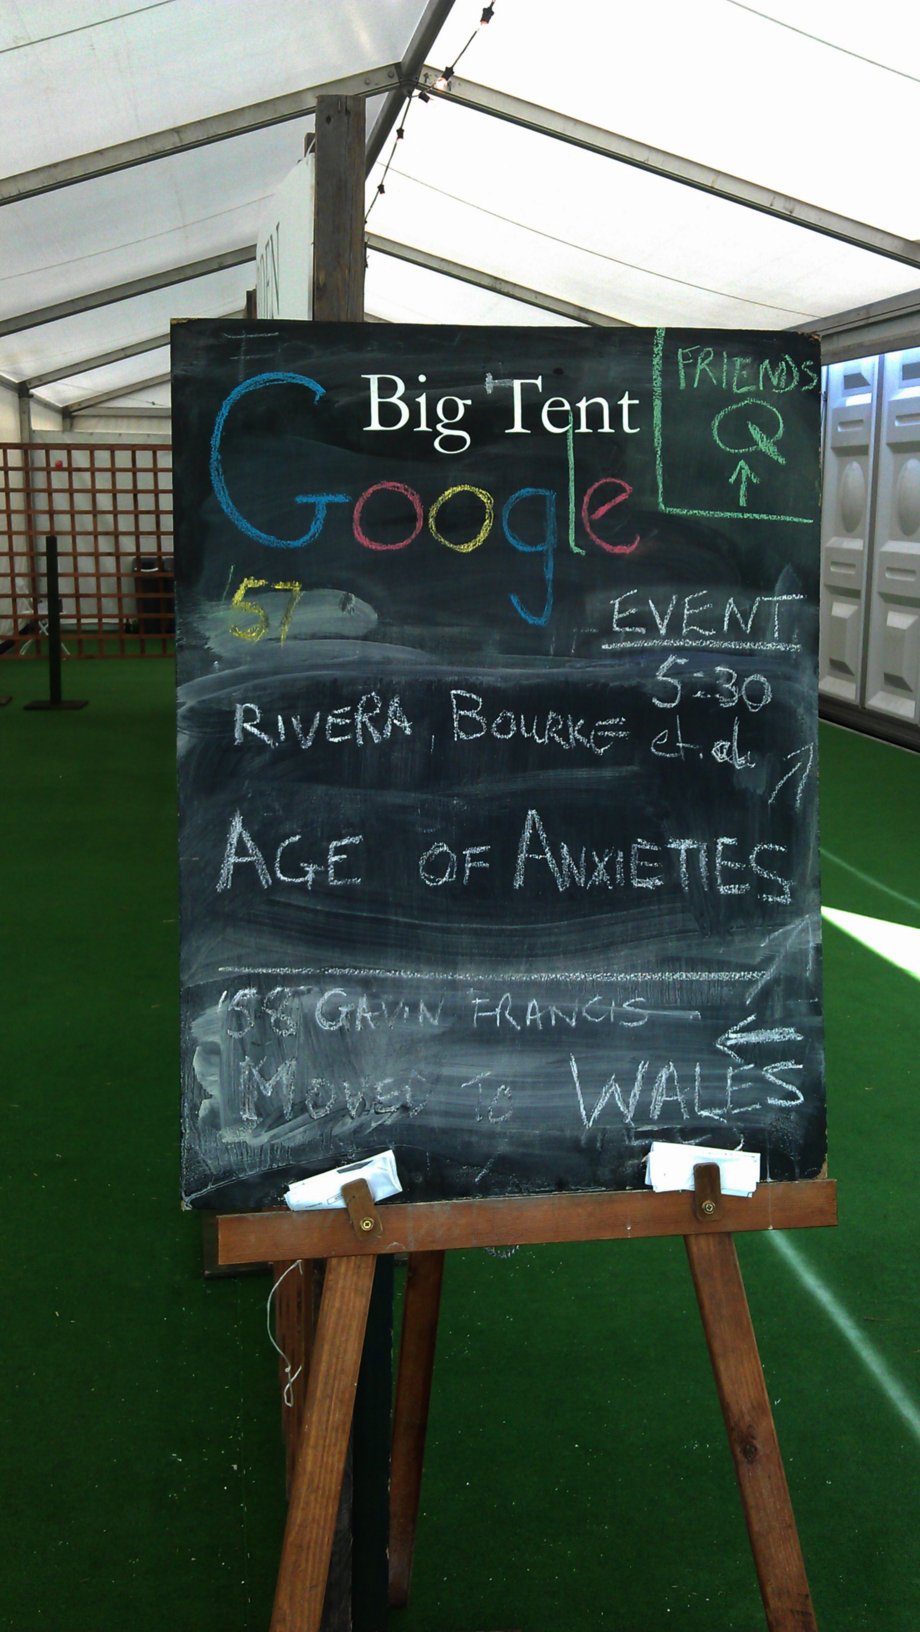 Big Tent
Google
FRIENDS
Q
'57
EVENT
5:30
RIVERA, BOURKE et.al
AGE OF ANXIETIES
'58 GAVIN FRANCIS
MOVED TO WALES